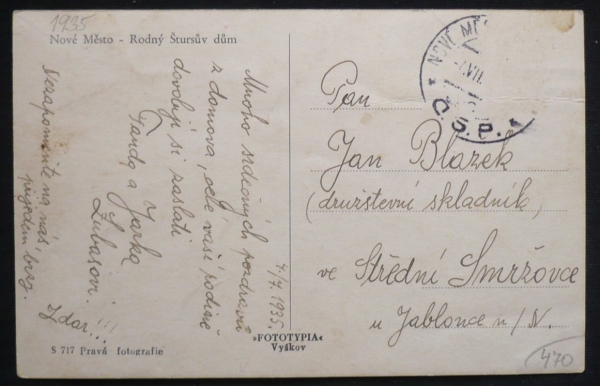 1935
Nové Město - Rodný Štursův dům
Mnoho srdečných pozdravů
z domova, celé vaší rodině
dovolují si zaslati
Fanda a Jarka
Lubasovi.
Nezapomeňte na nás,
přijedem brzo.
Zdar!!!
4/7 1935.
S 717 Pravá fotografie
»FOTOTYPIA«
Vyškov
NOVÉ MĚ
VII.
O.S.P.
Pan
Jan Blazek
(družstevní skladník,
ve Střední Smržovce
u Jablonce n/N.
470